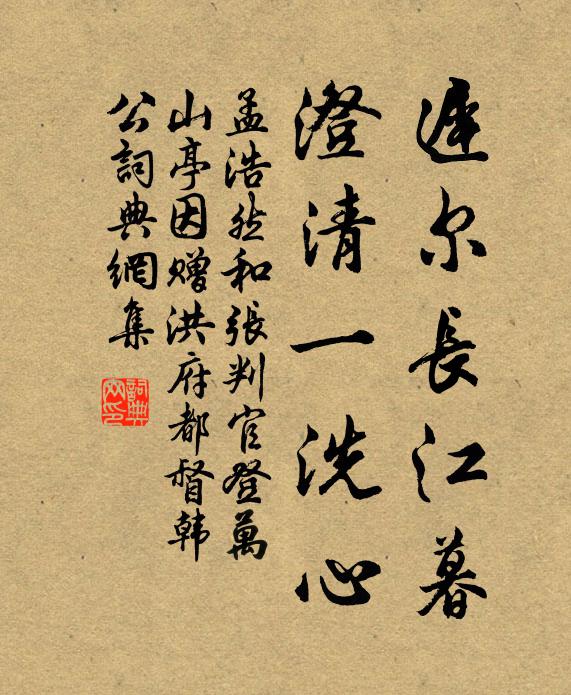 遲尔長江暮
澄清一洗心
孟浩然和張判官登萬
山亭因贈洪府都督韩
公詞典網集
詞典網印